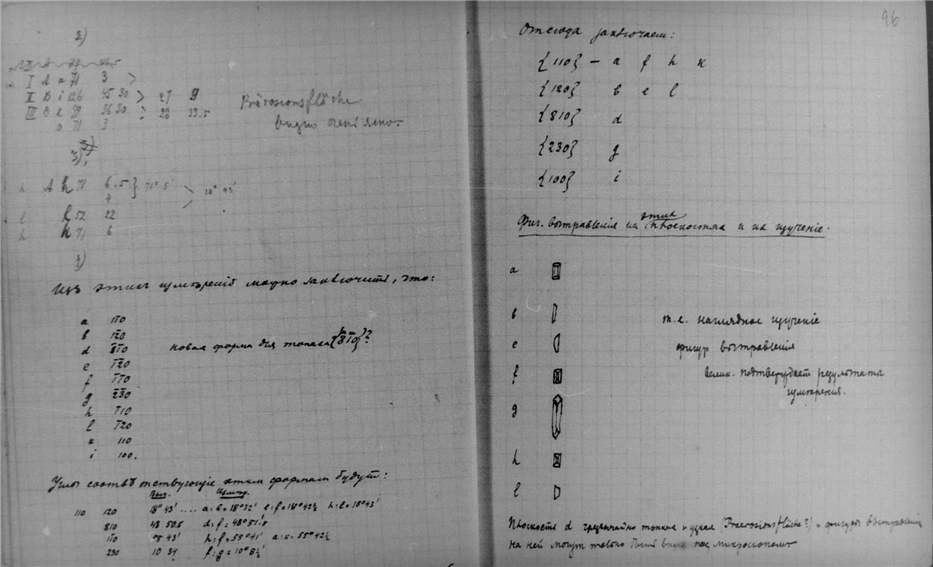 2)
I A a 71 3
II B i 126 45 30 > 27 9
III B k 59 36 30 > 28 33.5
a 71 3
3)
a A h 71 6.5 } 71° 5' 18° 43'
4
l l 52 22
h h 71 6
Prärosionsfläche
видно очень ясно.
Изъ этихъ измѣреній можно заключить, что:
a 11̄0
b 12̄0
d 8̄1̄0
e 1̄2̄0
f 1̄1̄0
g 2̄3̄0
h 1̄10
l 1̄20
k 110
i 100.
новая форма для топаза {8̄1̄0}?
Углы соотвѣтствующіе этимъ формамъ будутъ:
110 120 18° 43' .... a:b = 18°32' e:f = 18°42½ h:l = 18°43'
810 48 50.5 d:f = 48°51'.5
11̄0 55 43' h:f = 55°41' a:k = 55°42½
230 10 34 f:g = 10° 8½'
96
Отсюда заключаем:
{110} – a f h k
{120} b e l
{810} d
{230} g
{100} i
Фиг. вытравленія на этихъ плоскостяхъ и ихъ изученіе.
a
b
e
f
g
h
l
т.е. наглядное изученіе
фигур вытравленія
подтверждает результаты
измѣренія.
Плоскость d чрезвычайно тонка и узкая (Praerosionsfläche?) и фигуры вытравленія
на ней могут только быть под микроскопом